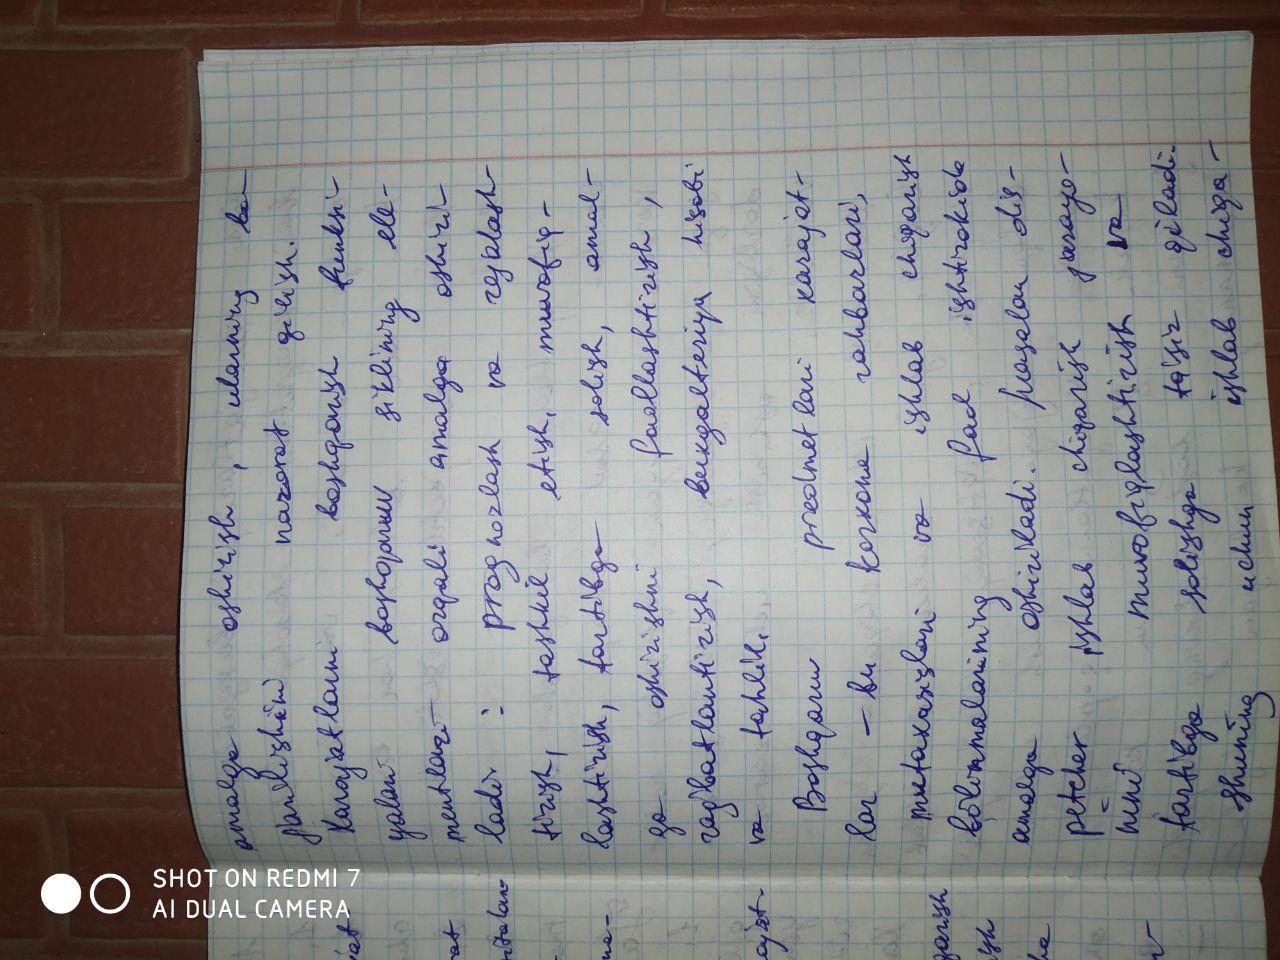 amalga oshirish, ularning ba-
jarilishini nazorat qilish.
Xarajatlarni boshqarish funksi-
yalari boshqaruv siklining ele-
mentlari orqali amalga oshiri-
ladi: prognozlash va rejalash-
tirish, tashkil etish, muvofiq-
lashtirish, tartibga solish, amal-
ga oshirishni faollashtirish,
rag'batlantirish, buxgalteriya hisobi
va tahlil.
Boshqaruv predmetlari xarajat-
lar - bu korxona rahbarlari,
mutaxassislari va ishlab chiqarish
bo'linmalarining faol ishtirokida
amalga oshiriladi. Masalan dis-
petcher ishlab chiqarish jarayo-
nini muvofiqlashtirish va
tartibga solishga ta'sir qiladi.
Shuning uchun ishlab chiqa-
SHOT ON REDMI 7
AI DUAL CAMERA